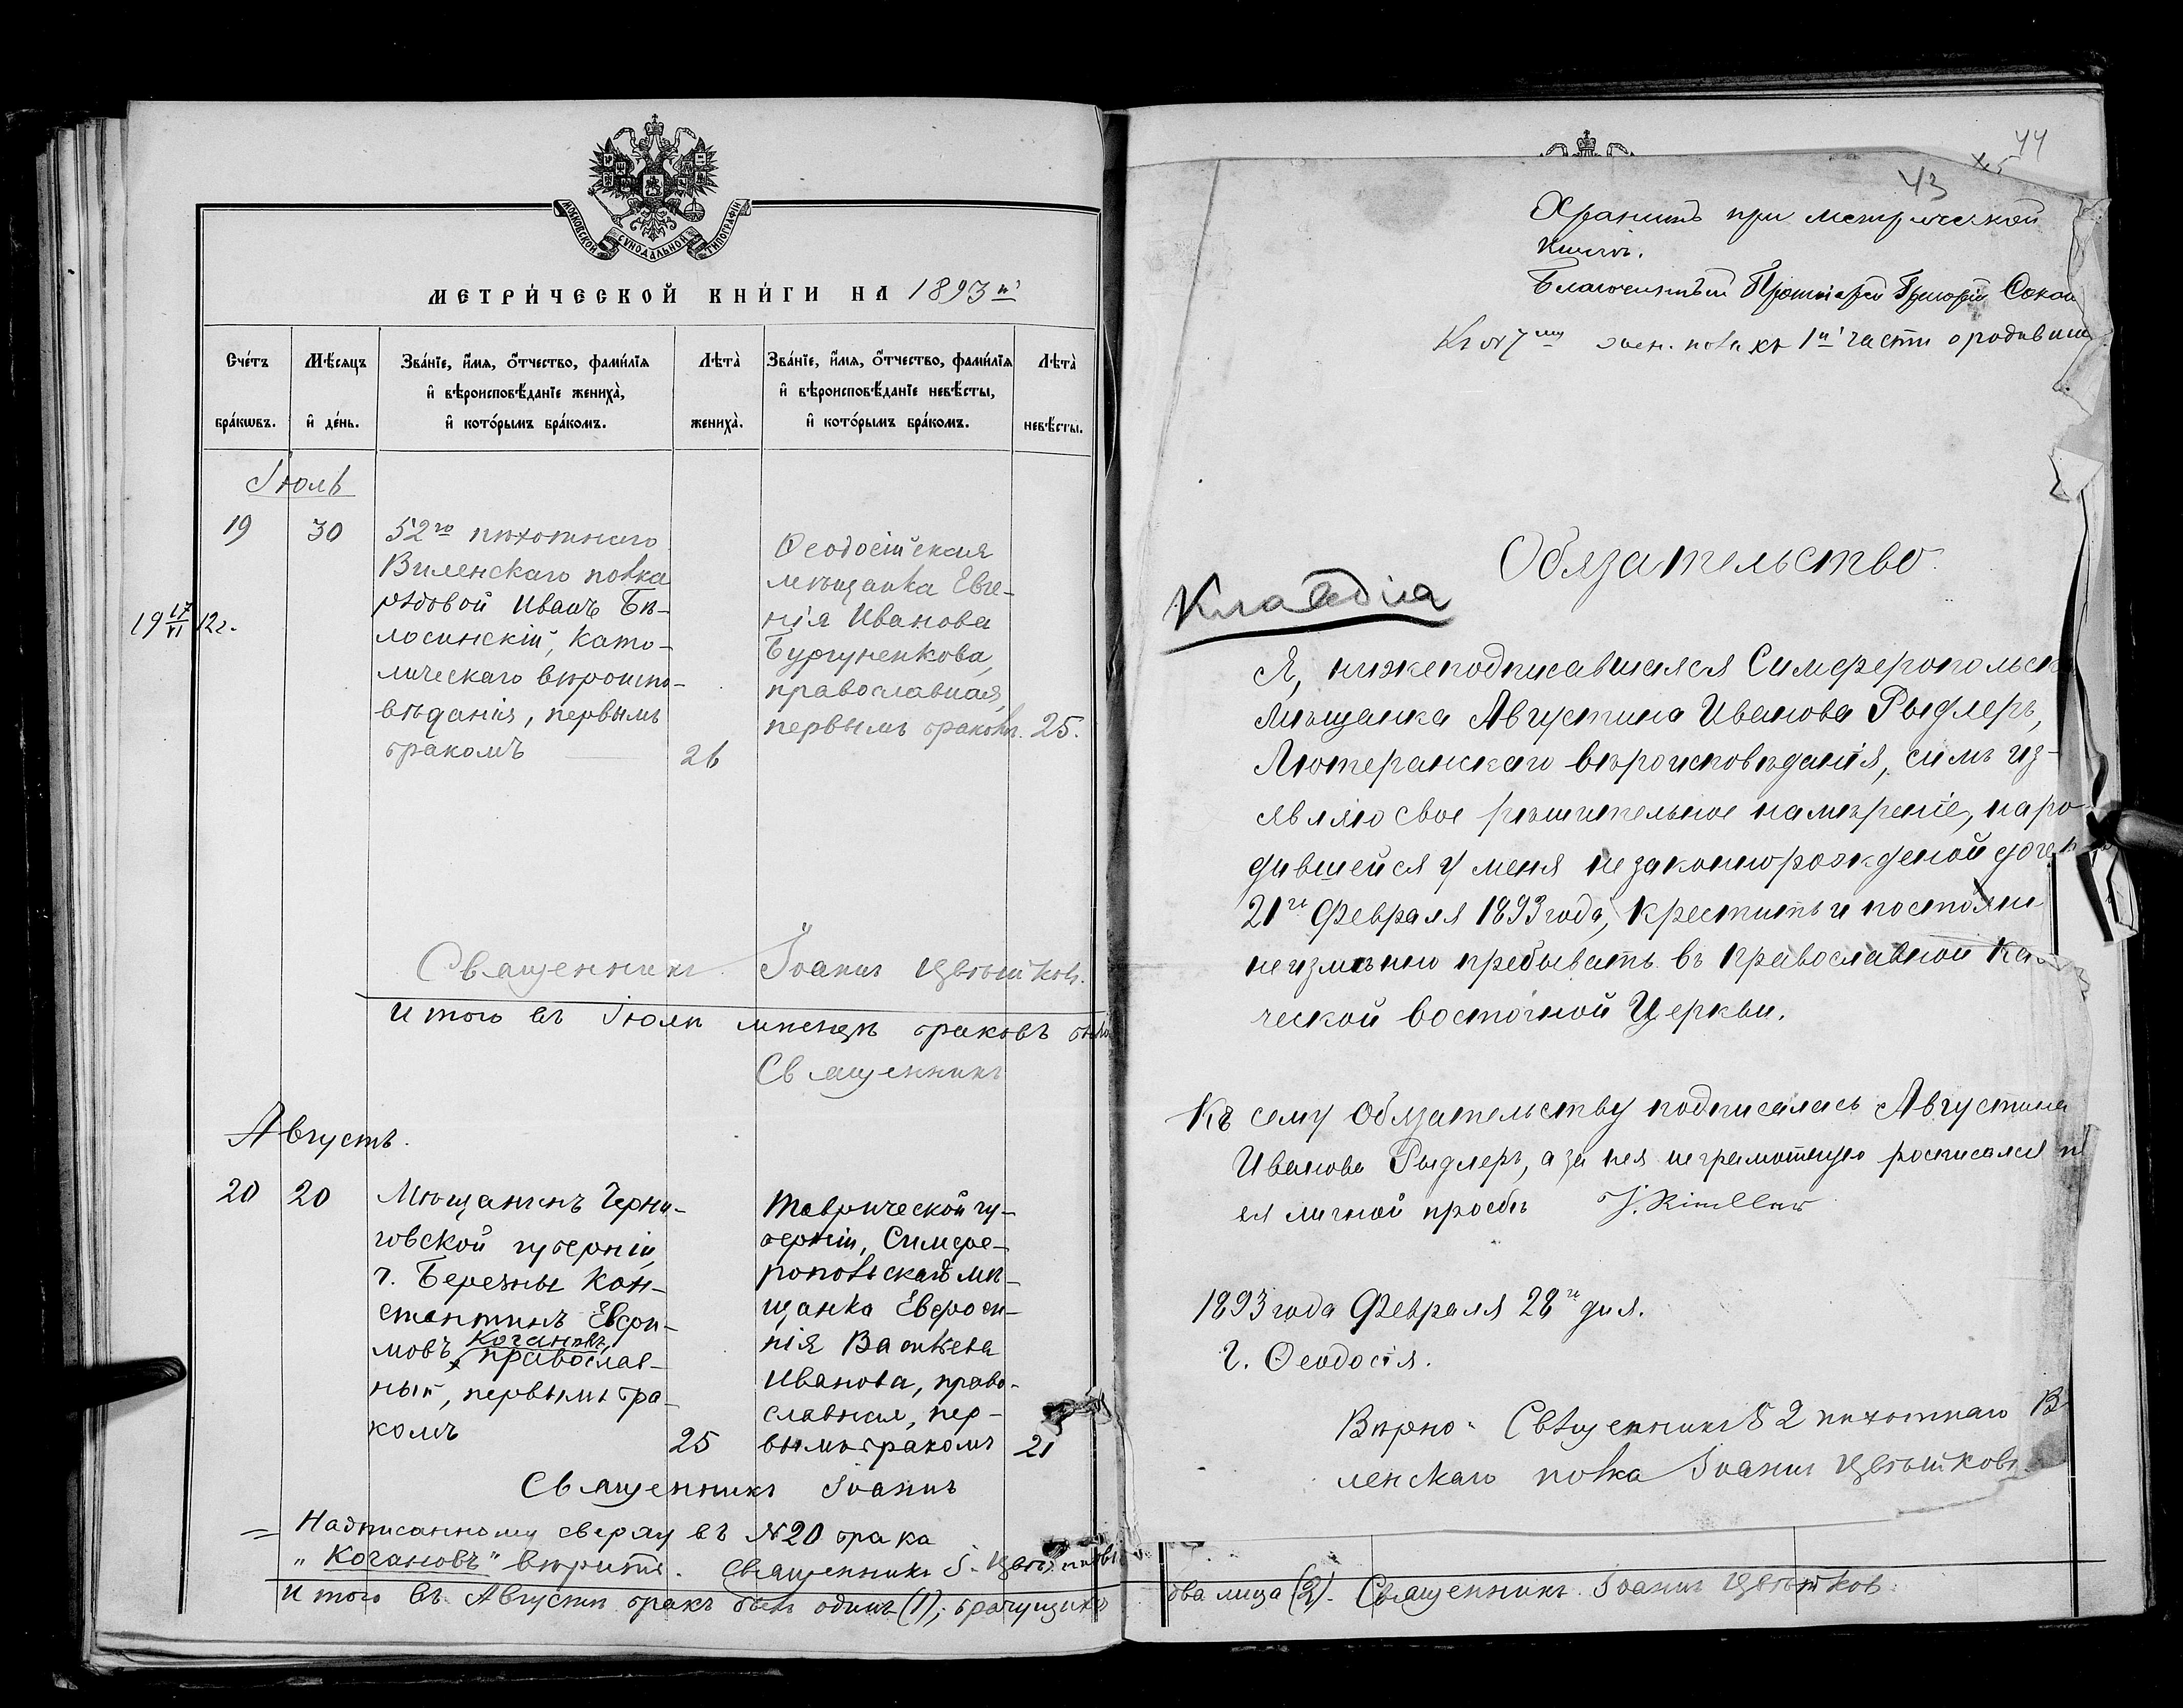 МОСКОВСКОЙ СУНОДАЛЬНОЙ ТИПОГРАФІИ
МЕТРИ́ЧЕСКОЙ КНИ́ГИ НА 1893 й
Сче́тъ бра́кѡвъ.
Мѣ́сяцъ и де́нь.
Зва́нїе, и́мѧ, о́тчество, фами́лїѧ и вѣроисповѣ́данїе жениха̀, и кото́рымъ бра́комъ.
Лѣта̀ жениха̀.
Зва́нїе, и́мѧ, о́тчество, фами́лїѧ и вѣроисповѣ́данїе невѣ́сты, и кото́рымъ бра́комъ.
Лѣта̀ невѣ́сты.
Іюль
19
30
52го пѣхотнаго
Виленскаго полка
рядовой Иванъ Бѣ-
лосинскій, Като-
лическаго вѣроиспо-
вѣданія, первымъ
бракомъ
26
Ѳеодосійская
мѣщанка Евге-
нія Иванова
Бургуненкова,
православная,
первымъ бракомъ.
25.
19 17/VI 12г.
Священникъ Іоаннъ Цвѣтковъ.
Итого въ Іюлѣ мѣсяцѣ браковъ
Священникъ
Августъ.
20
20
Мѣщанинъ Черни-
говской губерніи,
г. Березны Кон-
стантинъ Евфи-
мовъ Когановъ,
православ-
ный, первымъ бра-
комъ
25
Таврической гу-
берніи, Симфе-
ропольская мѣ-
щанка Евфроси-
нія Васильева
Иванова, право-
славная, пер-
вымъ бракомъ
21
Священникъ Іоаннъ
= Надписанному сверху въ №20 брака
„Когановъ" вѣрить. Священникъ І. Цвѣтковъ
Итого въ Августѣ бракъ былъ одинъ (1), брачущихся
два лица (2). Священникъ Іоаннъ Цвѣтковъ.
44
45
43
Хранить при метрической
книгѣ.
Благочинный Протоіерей
Къ №7му къ 1й части о родивш
Обязательство
Клавдія
Я, нижеподписавшаяся Симферопольск
Мѣщанка Августина Иванова Рыдлеръ,
Лютеранскаго вѣроисповѣданія, симъ из-
являю свое рѣшительное намѣреніе, наро
дившейся у меня незаконнорожденой дочен
21го Февраля 1893 года, крестить и постоян
неизмѣнно пребывать въ Православной Ка
ческой восточной Церкви.
Къ сему обязательству подписалась Августина
Иванова Рыдлеръ, а за нея неграмотную росписался п
ея личной просьбѣ
1893 года Февраля 28го дня.
г. Ѳеодосія.
Вѣрно: Священникъ 52 пѣхотнаго В
ленскаго полка Іоаннъ Цвѣтковъ.